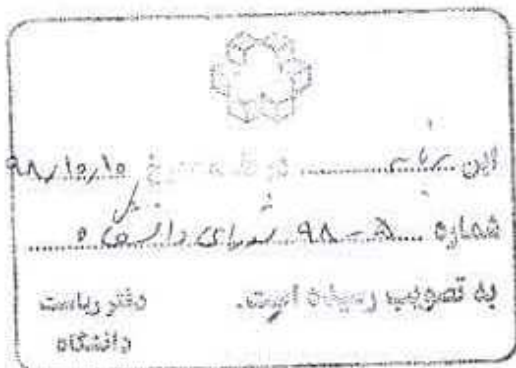 این ... در جلسه مورخ ۹۸/۱۰/۱۰
شماره ۵-۹۸ شورای دانشگاه
به تصویب رسیده است.
دفتر ریاست
دانشگاه